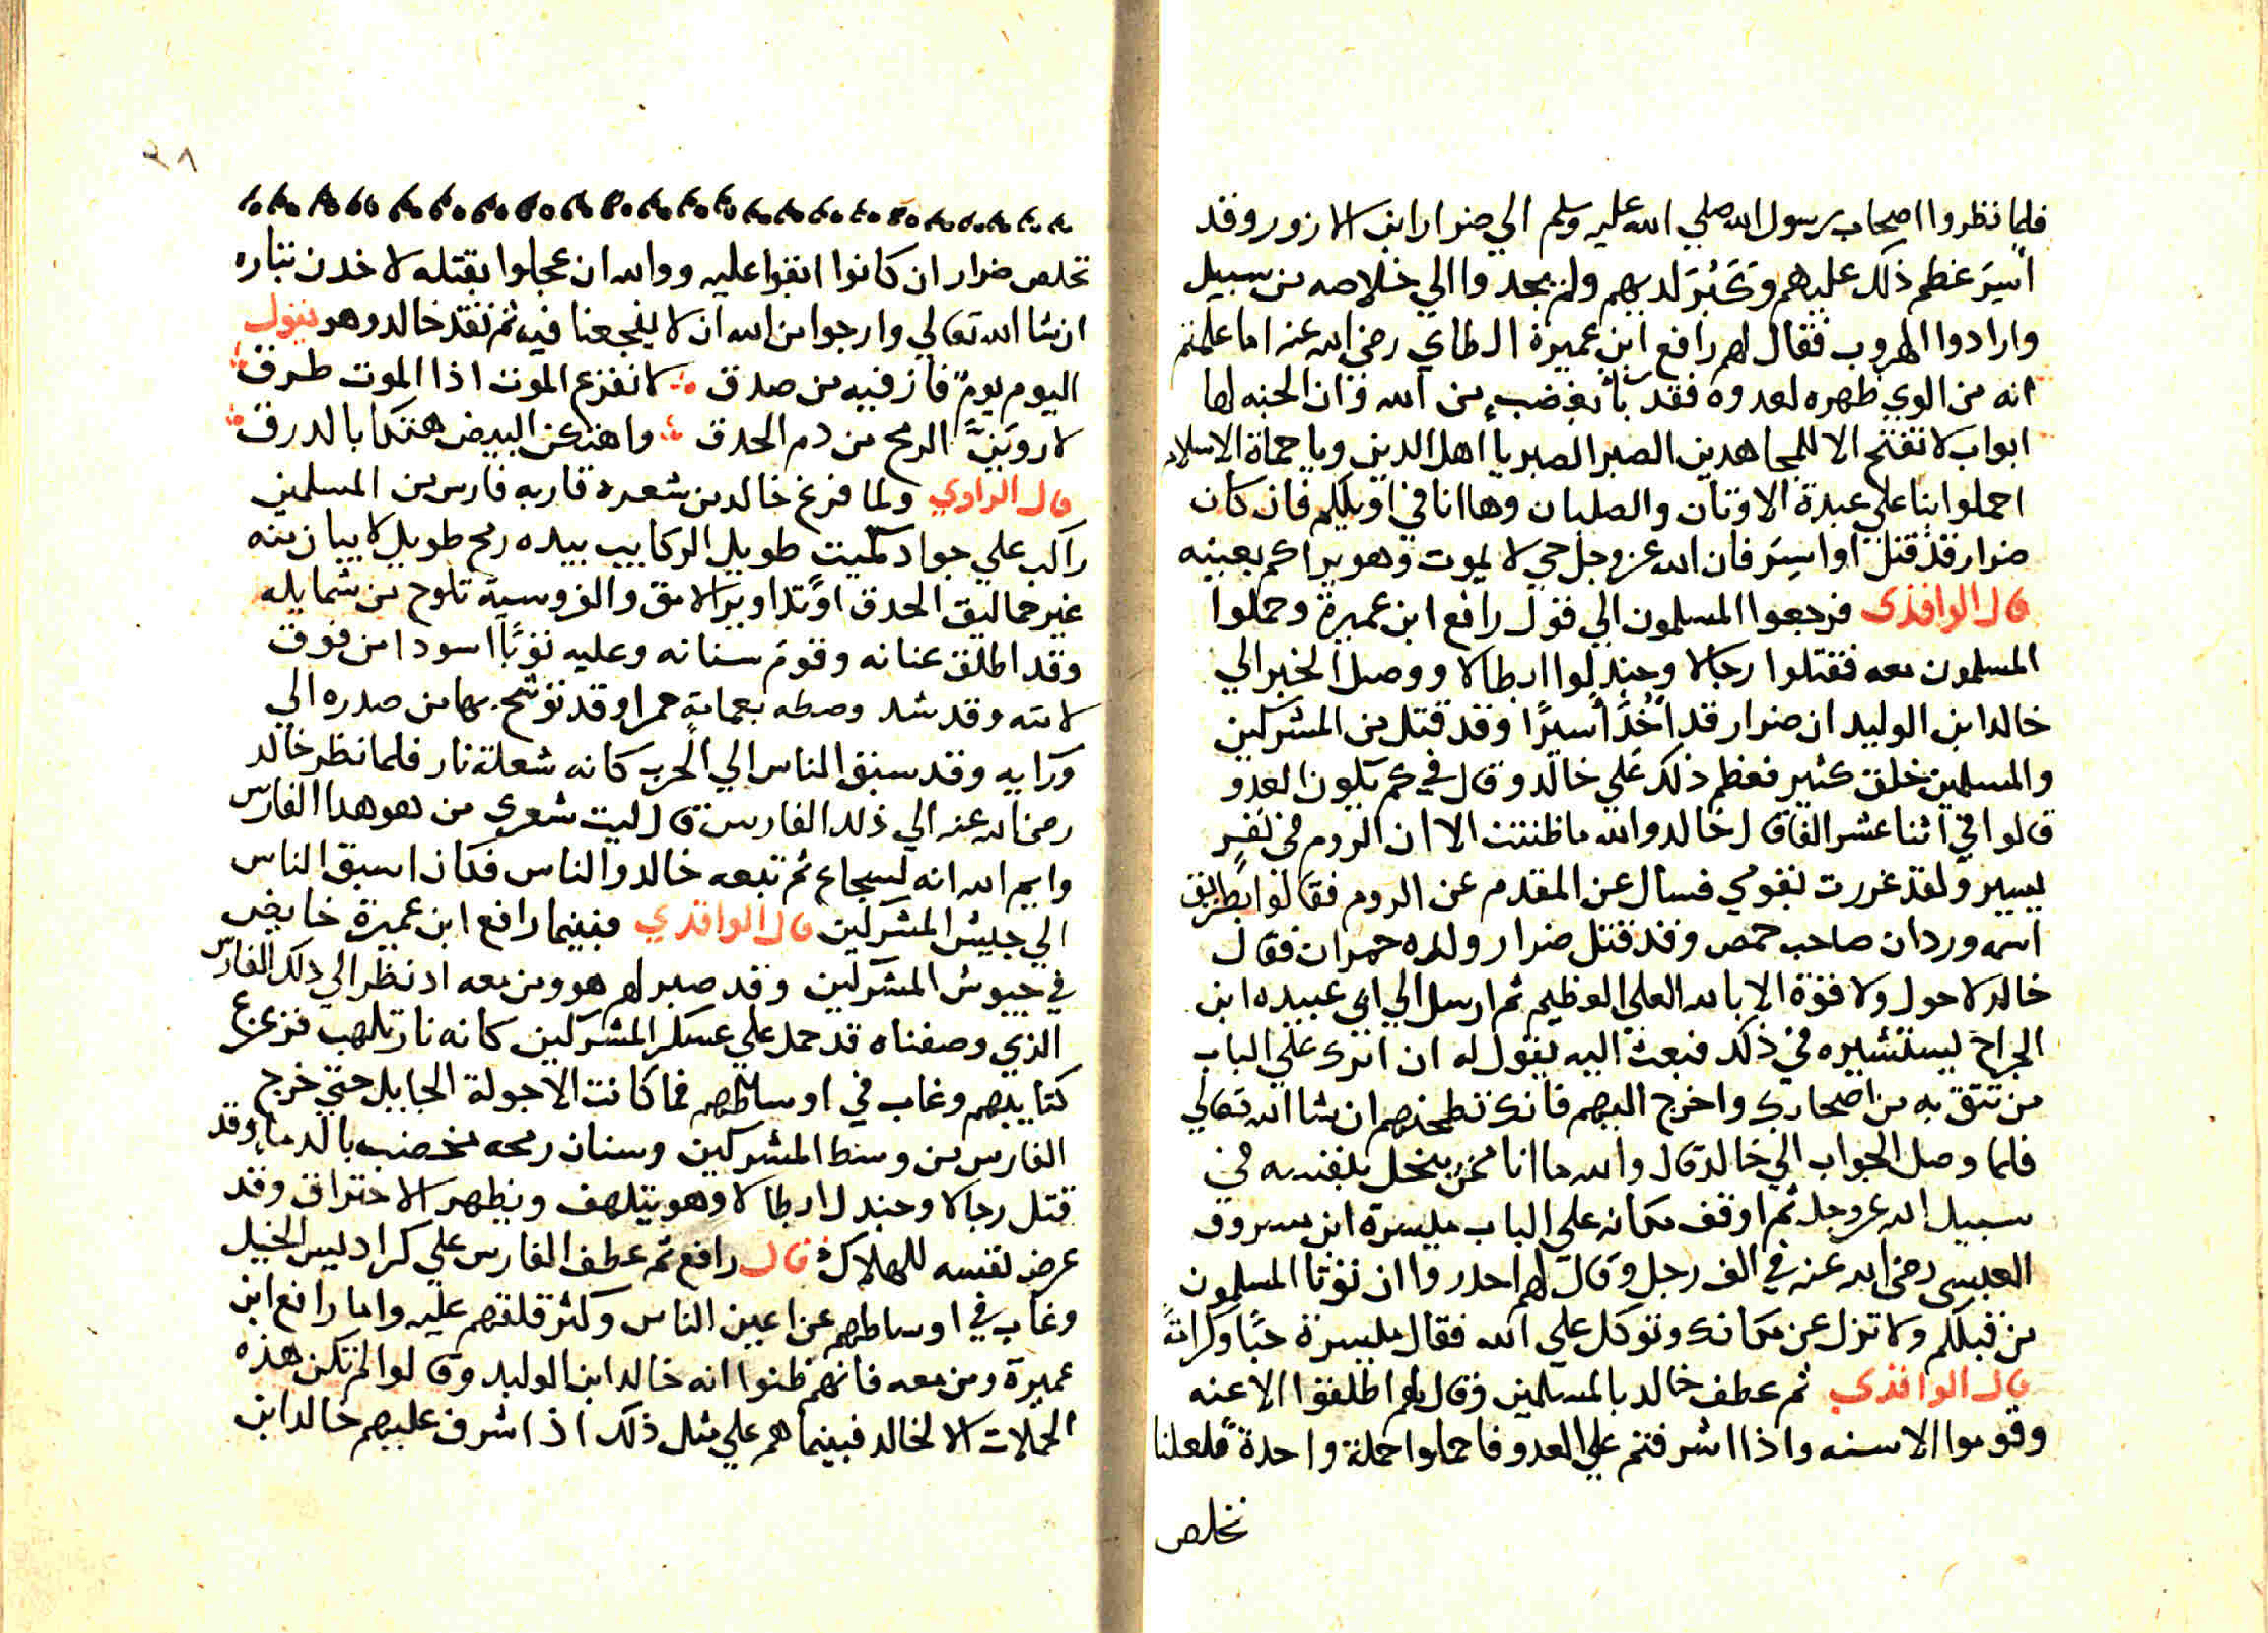 فلما نظروا اصحاب رسول الله صلي الله عليه وسلم الي ضرار ابن الازور وقد
أسِيرَ عظم ذلك عليهم وَكَبُرَ لديهم ولم يجدوا الي خلاصه من سبيل
وارادوا الهروب فقال لهم رافع ابن عميرة الطاي رضي الله عنه اما علمتم
انه من الوي ظهره لعدوه فقد بأ بغضبٍ من الله وان الجنه لها
ابواب لا تفتح الا للمجاهدين الصبر الصبر يا اهل الدين ويا حماة الاسلام
احملوا بنا علي عبدة الاوثان والصلبان وها انا في اويلكم فان كان
ضرار قد قتل او اسِرَ فان الله عز وجل حي لا يموت وهو يراكم بعينه
قال الواقدي فرجعوا المسلمون الي قول رافع ابن عميرة وحملوا
المسلمون معه فقتلوا رجالا وجندلوا ابطالا ووصل الخبر الي
خالد ابن الوليد ان ضرار قد أُخُذَ أسيرًا وقد قتل من المشركين
والمسلمين خلق كثير فعظم ذلك علي خالد وقال في كم يكون العدو
قالوا في اثنا عشر الفا قال خالد والله ما ظننت الا ان الروم في نفرٍ
يسير ولقد غررت بقومي فسال عن المقدم عن الروم فقالوا بطريق
اسمه وردان صاحب حمص وقد قتل ضرار ولده حمران فقال
خالد لا حول ولا قوة الا بالله العلي العظيم ثم ارسل الي ابي عبيده ابن
الجراح ليستشيره في ذلك فبعث اليه يقول له ان اترك علي الباب
من تثق به من اصحابك واخرج اليهم فانك تطحنهم ان شا الله تعالي
فلما وصل الجواب الي خالد قال والله ما انا ممن يبخل بنفسه في
سبيل الله عز وجل ثم اوقف مكانه علي الباب ميسرة ابن مسروق
العبسي رضي الله عنه في الف رجل وقال لهم احذروا ان نوتا المسلمون
من قبلكم ولا تزل عن مكانك وتوكل علي الله فقال ميسرة حبًا وكرامةً
قال الواقدي ثم عطف خالد بالمسلمين وقال لهم اطلقوا الاعنه
وقوموا الاسنه واذا اشرفتم علي العدو فاحملوا حملة واحدة فلعلنا
نخلص
٩٨
تخلص ضرار ان كانوا ابقوا عليه ووالله ان عجلوا بقتله لاخذن بتاره
ان شا الله تعالي وارجوا من الله ان لا يفجعنا فيه ثم تقد خالد وهو يقول
اليوم يومٌ فاز فيه من صدق لا نفزع الموت اذا الموت طرق
لاروينَّ الرمح من دم الحدق واهتكن البيض هتكا بالدرق
قال الراوي ولما فرغ خالد من شعره قاربه فارس من المسلمين
راكب علي جواد كميت طويل الركايب بيده رمح طويل لا يبان منه
غير حماليق الحدق او تداوير الامق والفروسية تلوح من شمايله
وقد اطلق عنانه وقوم سنانه وعليه ثوبًا اسودا من فوق
لامته وقد شد وصطه بعمامةٍ حمرا وقد توشح بها من صدره الي
ورايه وقد سبق الناس الي الحرب كانه شعلة نار فلما نظر خالد
رضي الله عنه الي ذلك الفارس قال ليت شعري من هو هدا الفارس
وايم الله انه لشجاع ثم تبعه خالد والناس فكان اسبق الناس
الي جيش المشركين قال الواقدي فبينما رافع ابن عميرة خايض
في جيوش المشركين وقد صبر لهم هو ومن معه اد نظر الي دلك الفارس
الذي وصفناه قد حمل علي عسكر المشركين كانه نار تلهب فزعزع
كتايبهم وغاب في اوساطهم فما كانت الا جولة الجايل حتي خرج
الفارس من وسط المشركين وسنان رمحه مخضب بالدما وقد
قتل رجالا وجندل ابطالا وهو يتلهف ويظهر الاحتراق وقد
عرض نفسه للهلاك قال رافع ثم عطف الفارس علي كراديس الخيل
وغاب في اوساطهم عن اعين الناس وكثر قلقهم عليه واما رافع ابن
عميرة ومن معه فانهم ظنوا انه خالد ابن الوليد وقالوا لم تكن هذه
الحملات الا لخالد فبينما هم علي مثل ذلك اذ اشرف عليهم خالد ابن